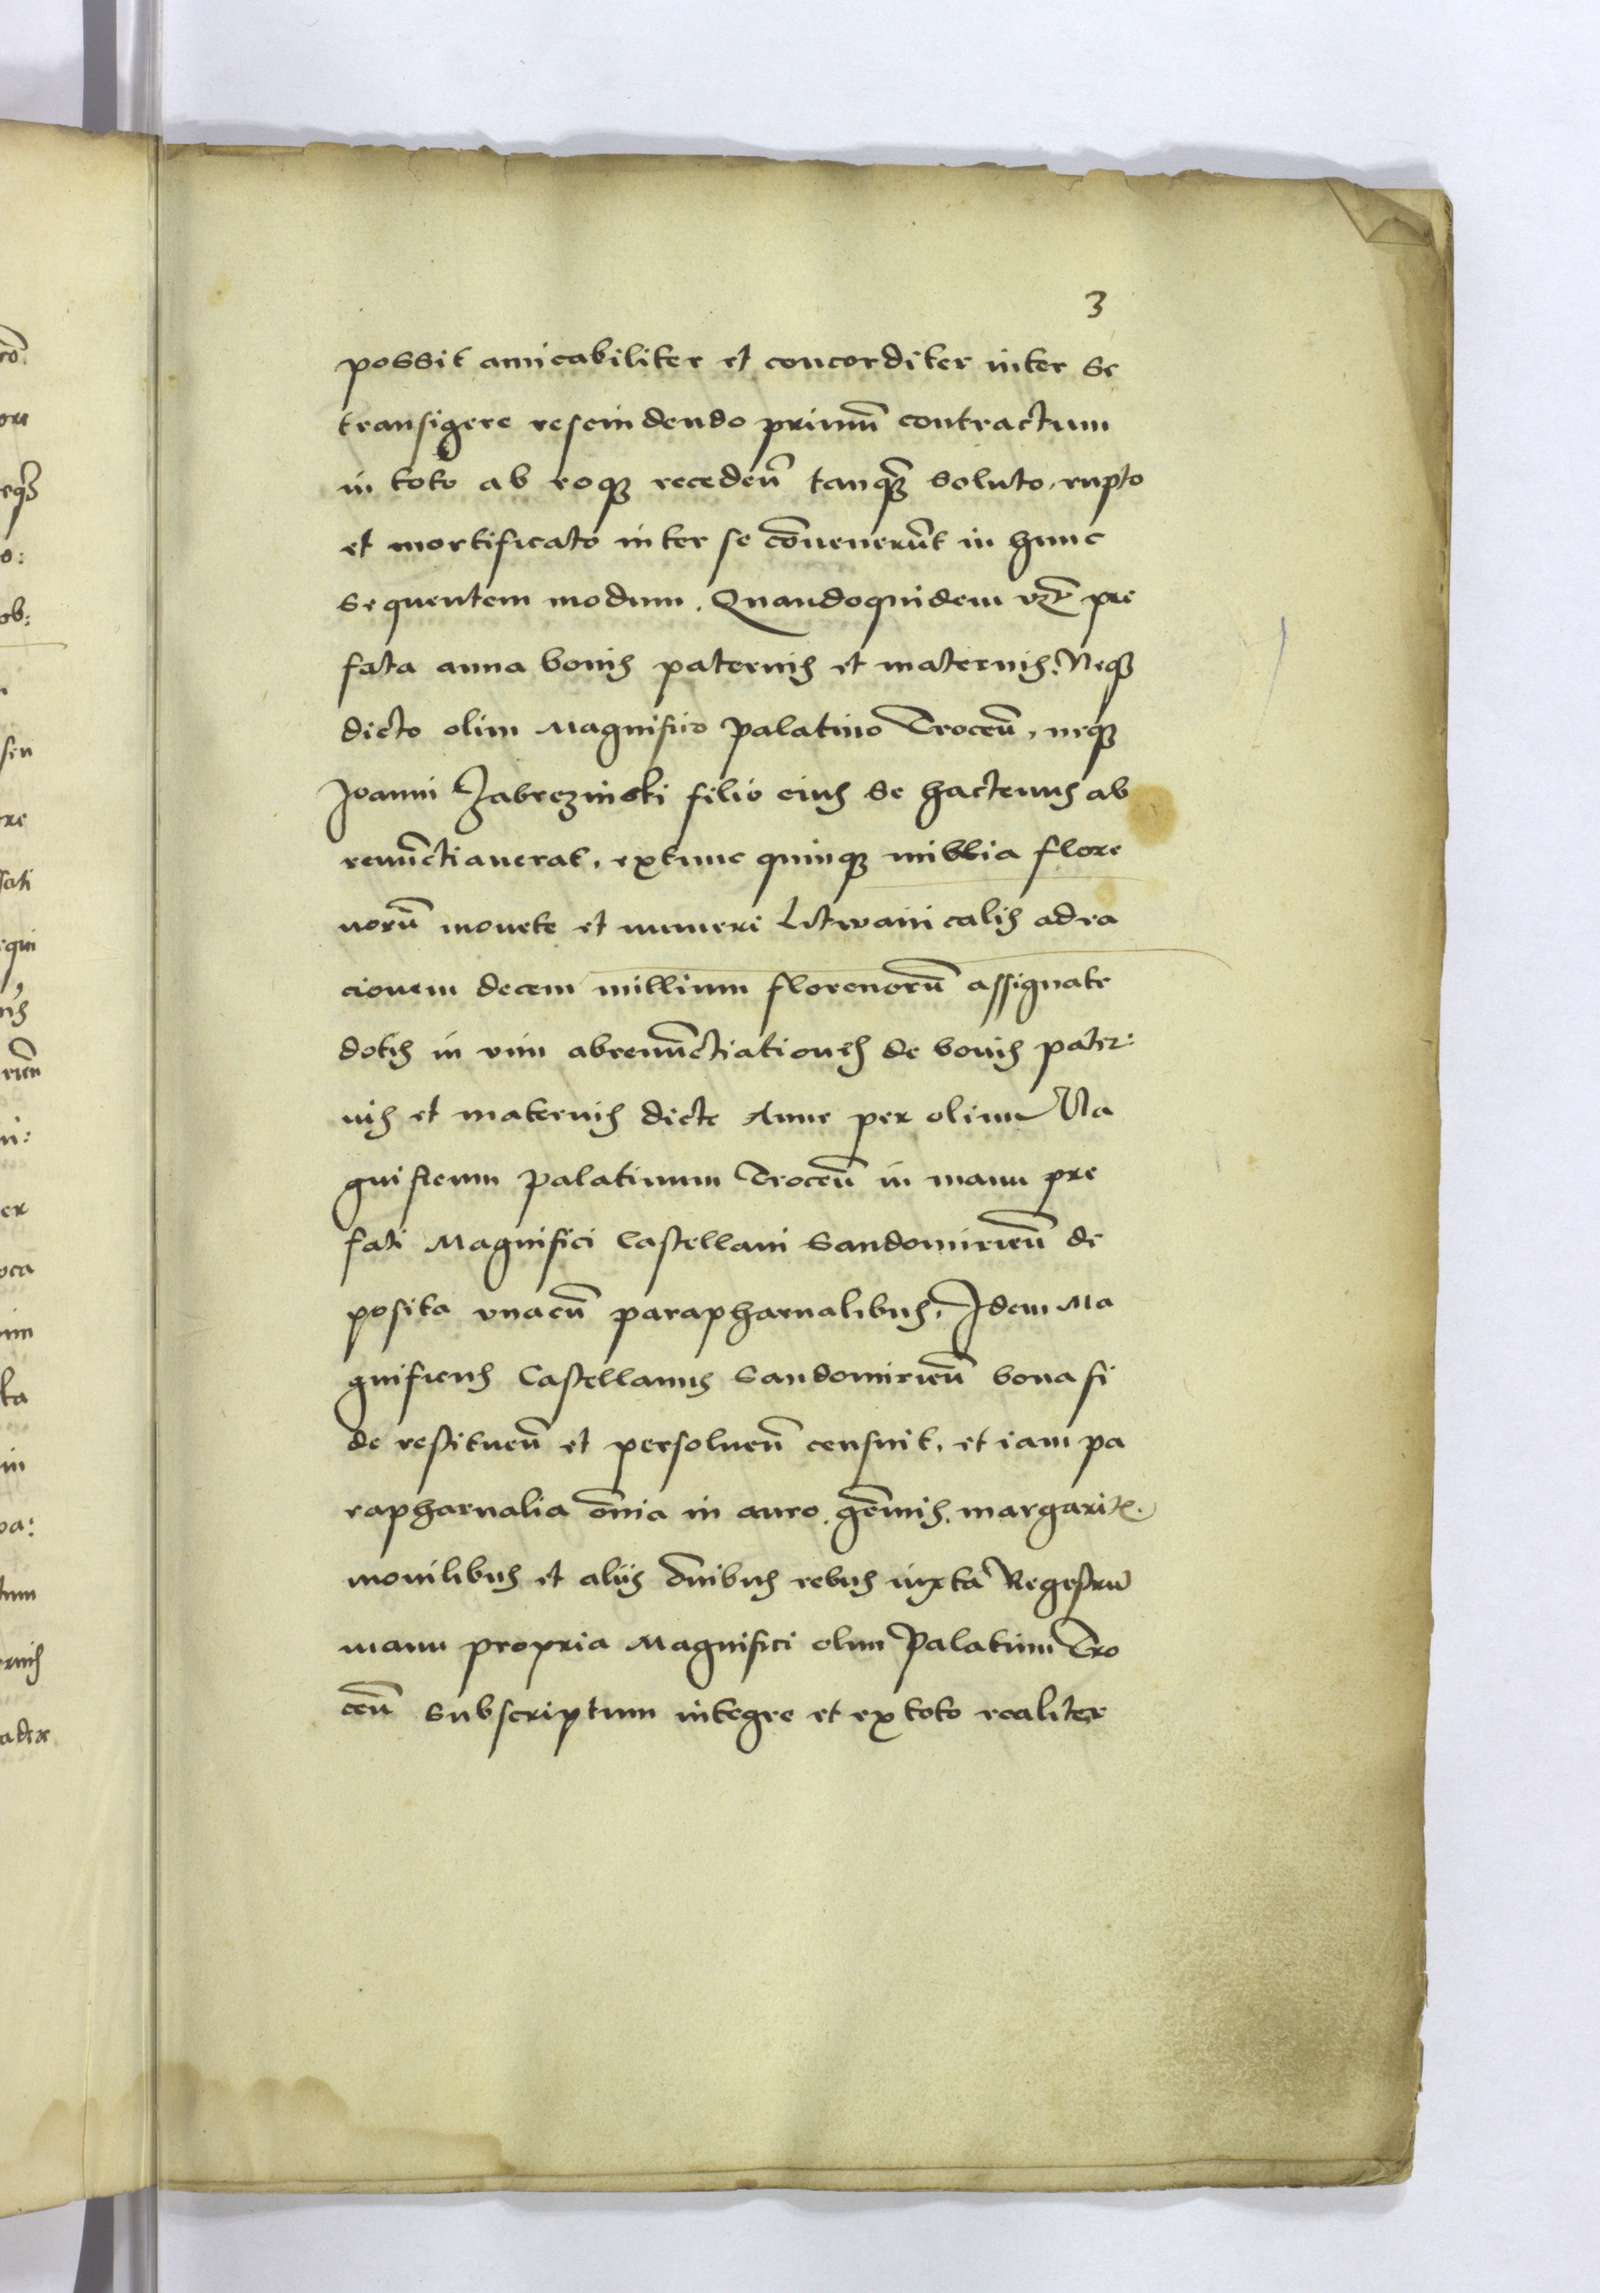 3
possit amicabiliter et concorditer inter se
transigere rescindendo primũ contractum
in toto ab eoqȝ recedeñ tanqȝ soluto, rupto
et mortificato inter se cõuenerũt in hunc
sequentem modum. Quandoquidem pre
fata anna bonis paternis et maternis. Neqȝ
dicto olim Magnifico Palatino Troceñ, neqȝ
Joanni Zabrezinski filio eius se hactenus ab
renũctiauerat, extunc quinqȝ millia flore
norũ monete et numeri Litwanicalis ad ra
cionem decem millium florenorũ assignate
dotis in vim abrenũctiationis de bonis pater:
nis et maternis dicte Anne per olim Ma
gnificum Palatinum Troceñ in manu pre
fati Magnifici Castellani Sandomirieñ de
posita vnacũ parapharnalibus, Idem Ma
gnificus Castellanus Sandomirieñ bona fi
de restitueñ et persolueñ censuit, et iam pa
rapharnalia õnia in auro, gẽmis, margarit.
monilibus et aliis õnibus rebus iuxta Regestrũ
manu propria Magnifici olim Palatini Tro
ceñ subscriptum integre et ex toto realiter